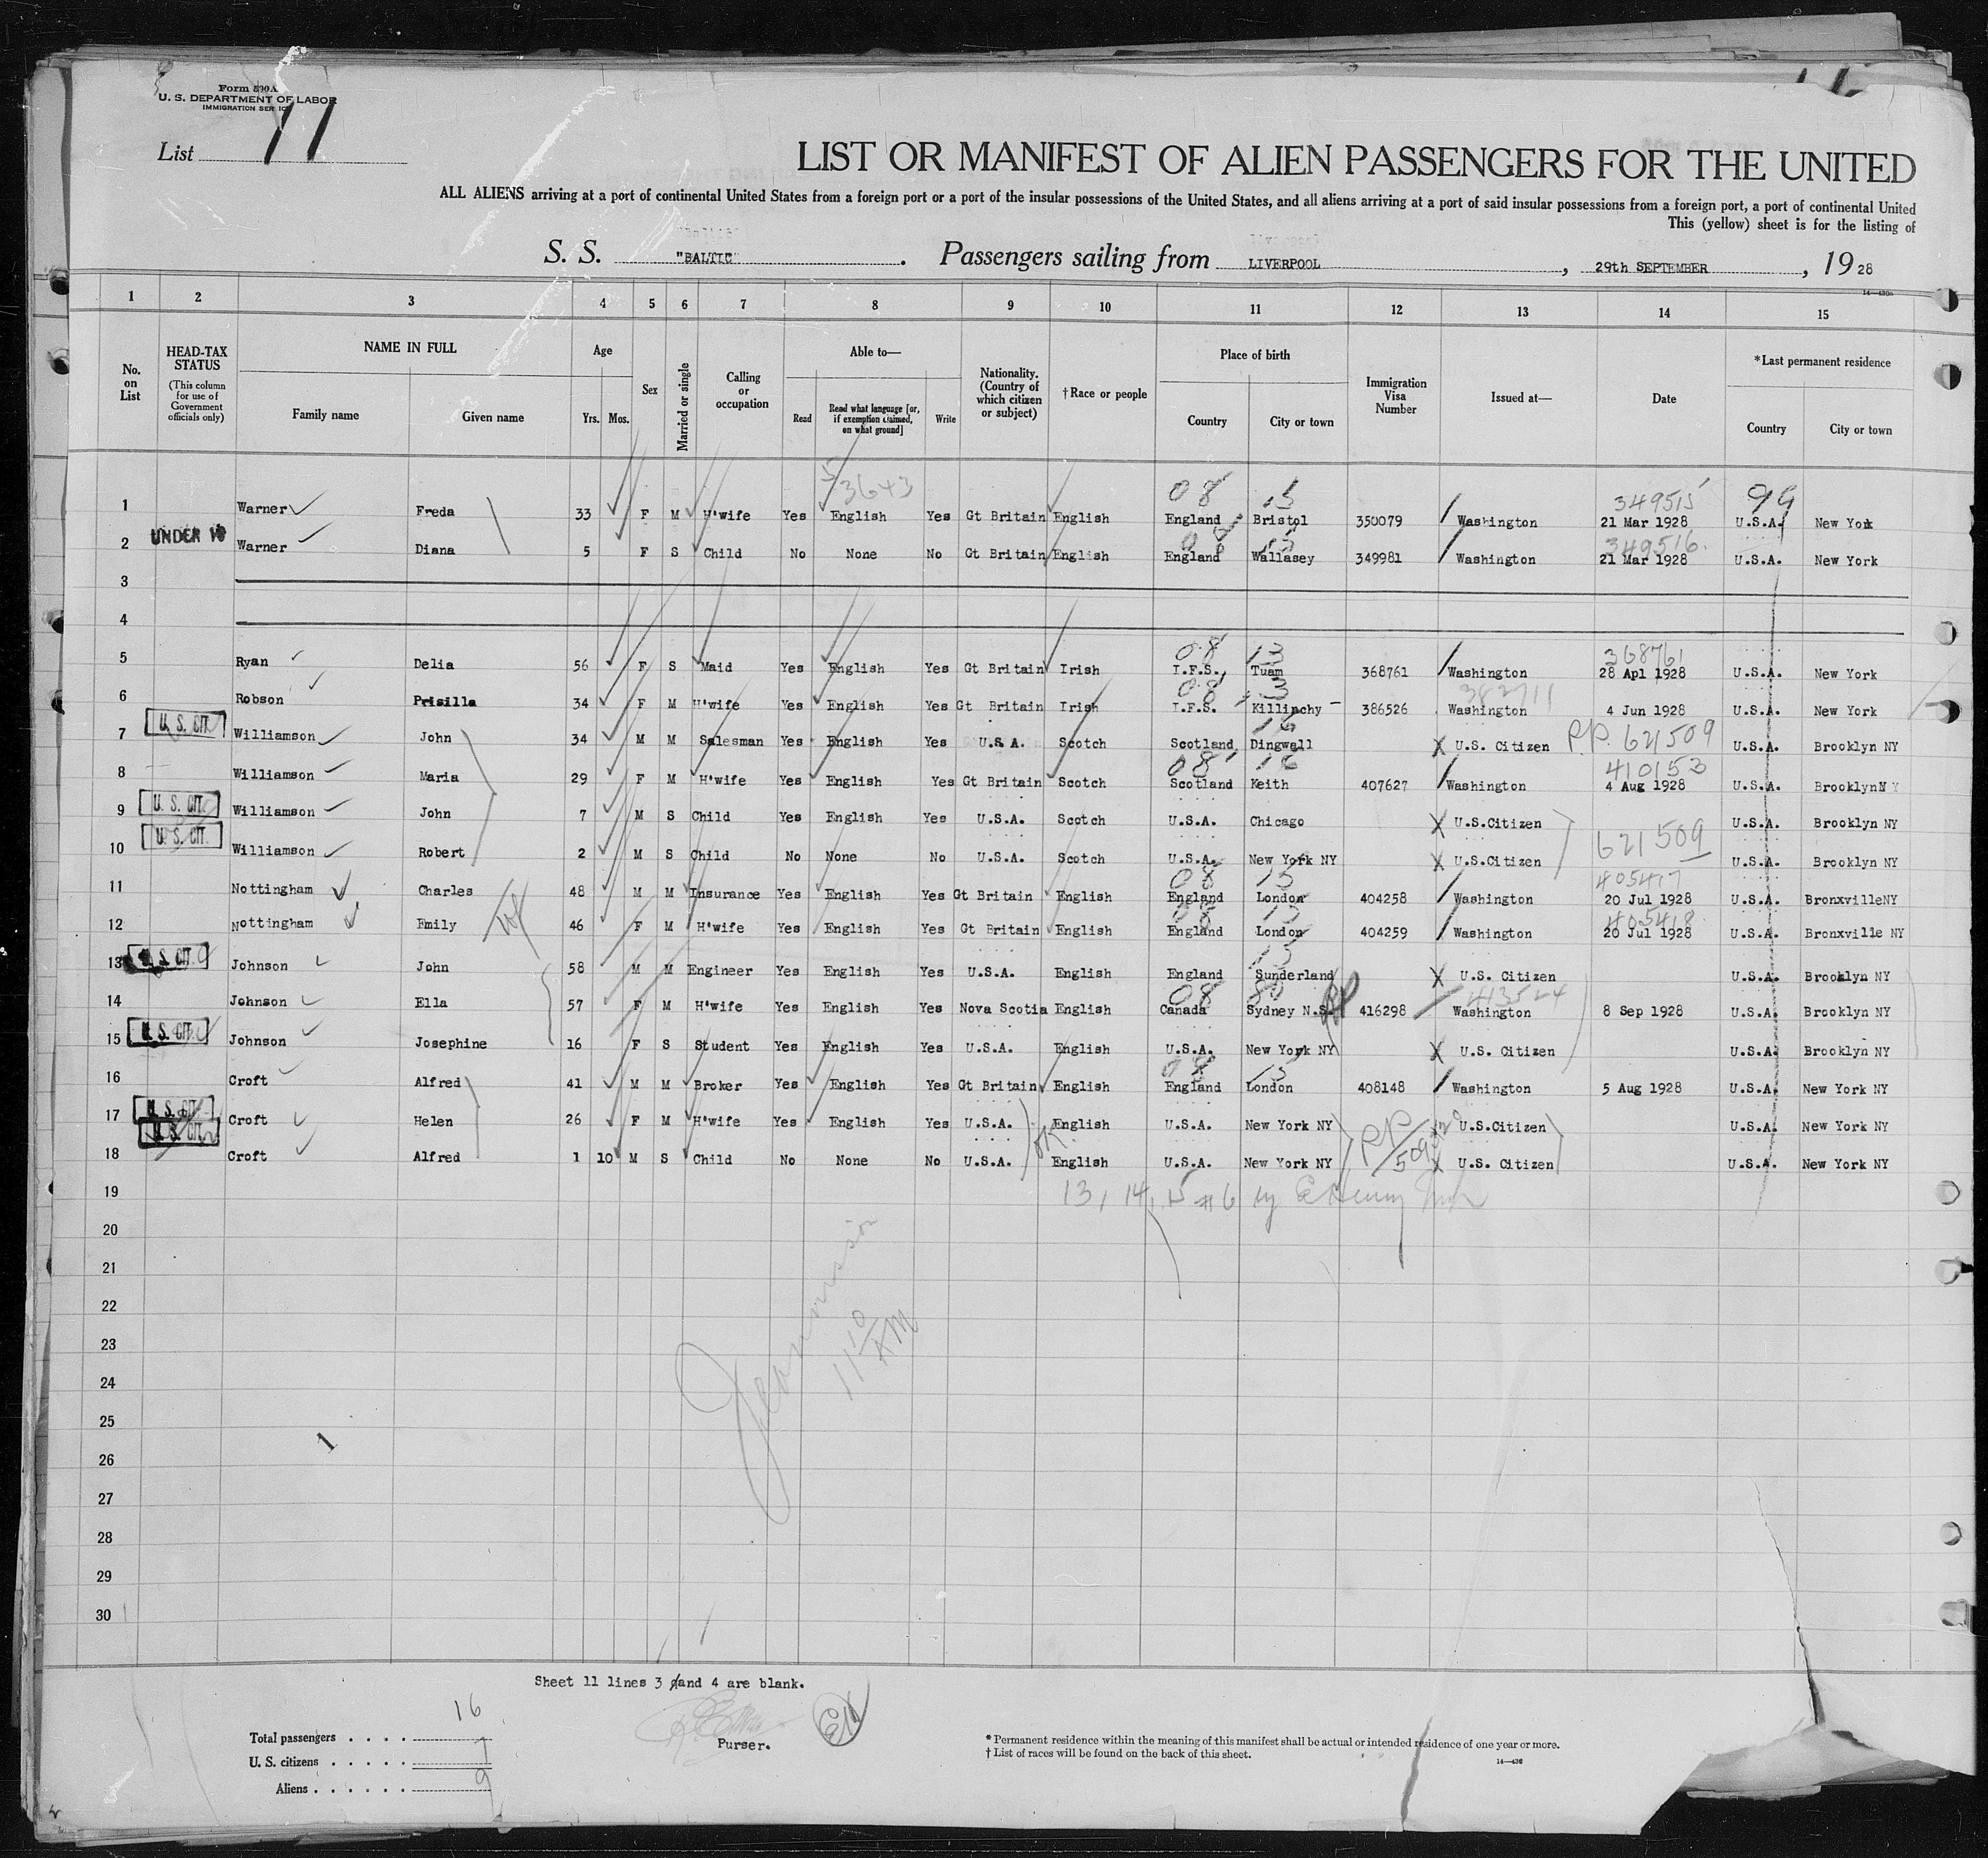 Form 500A
U. S. DEPARTMENT OF LABOR
IMMIGRATION SERVICE
List 11
LIST OR MANIFEST OF ALIEN PASSENGERS FOR THE UNITED
ALL ALIENS arriving at a port of continental United States from a foreign port or a port of the insular possessions of the United States, and all aliens arriving at a port of said insular possessions from a foreign port, a port of continental United
This (yellow) sheet is for the listing of
S. S. "BALTIC". Passengers sailing from LIVERPOOL, 29th SEPTEMBER, 19 28
1 2 3 4 5 6 7 8 9 10 11 12 13 14 15
No. on List
HEAD-TAX STATUS (This column for use of Government officials only)
NAME IN FULL
Family name Given name
Age
Yrs. Mos.
Sex
Married or single
Calling or occupation
Able to—
Read
Read what language [or, if exemption claimed, on what ground]
Write
Nationality. (Country of which citizen or subject)
†Race or people
Place of birth
Country City or town
Immigration Visa Number
Issued at—
Date
*Last permanent residence
Country City or town
53643 08 13 349515 99
1 Warner Freda 33 F M H'wife Yes English Yes Gt Britain English England Bristol 350079 Washington 21 Mar 1928 U.S.A. New York
UNDER 16 08 13 349516
2 Warner Diana 5 F S Child No None No Gt Britain English England Wallasey 349981 Washington 21 Mar 1928 U.S.A. New York
3
4
08 13 368761
5 Ryan Delia 56 F S Maid Yes English Yes Gt Britain Irish I.F.S. Tuam 368761 Washington 28 Apl 1928 U.S.A. New York
08 13 382711
6 Robson Prisilla 34 F M H'wife Yes English Yes Gt Britain Irish I.F.S. Killinchy 386526 Washington 4 Jun 1928 U.S.A. New York
U. S. CIT.
7 Williamson John 34 M M Salesman Yes English Yes U.S.A. Scotch Scotland Dingwall X U.S. Citizen P.P. 621509 U.S.A. Brooklyn NY
08 16 410153
8 Williamson Maria 29 F M H'wife Yes English Yes Gt Britain Scotch Scotland Keith 407627 Washington 4 Aug 1928 U.S.A. Brooklyn N Y
U. S. CIT.
9 Williamson John 7 M S Child Yes English Yes U.S.A. Scotch U.S.A. Chicago X U.S.Citizen U.S.A. Brooklyn NY
U. S. CIT. 621509
10 Williamson Robert 2 M S Child No None No U.S.A. Scotch U.S.A. New York NY X U.S.Citizen U.S.A. Brooklyn NY
08 13 405417
11 Nottingham Charles 48 M M Insurance Yes English Yes Gt Britain English England London 404258 Washington 20 Jul 1928 U.S.A. BronxvilleNY
08 13 405418
12 Nottingham Emily 46 F M H'wife Yes English Yes Gt Britain English England London 404259 Washington 20 Jul 1928 U.S.A. Bronxville NY
U. S. CIT.
13 Johnson John 58 M M Engineer Yes English Yes U.S.A. English England Sunderland X U.S. Citizen U.S.A. Brooklyn NY
08
14 Johnson Ella 57 F M H'wife Yes English Yes Nova Scotia English Canada Sydney N.S. 416298 Washington 8 Sep 1928 U.S.A. Brooklyn NY
U. S. CIT.
15 Johnson Josephine 16 F S Student Yes English Yes U.S.A. English U.S.A. New York NY X U.S. Citizen U.S.A. Brooklyn NY
08 13
16 Croft Alfred 41 M M Broker Yes English Yes Gt Britain English England London 408148 Washington 5 Aug 1928 U.S.A. New York NY
U. S. CIT.
17 Croft Helen 26 F M H'wife Yes English Yes U.S.A. English U.S.A. New York NY PP X U.S.Citizen U.S.A. New York NY
U. S. CIT.
18 Croft Alfred 1 10 M S Child No None No U.S.A. English U.S.A. New York NY X U.S. Citizen U.S.A. New York NY
19 13, 14, 15 #6 by
20
21
22
23 11 10 AM
24
25
26
27
28
29
30
Sheet 11 lines 3 and 4 are blank.
Total passengers 16
U. S. citizens 7
Aliens 9
Purser.
* Permanent residence within the meaning of this manifest shall be actual or intended residence of one year or more.
† List of races will be found on the back of this sheet.